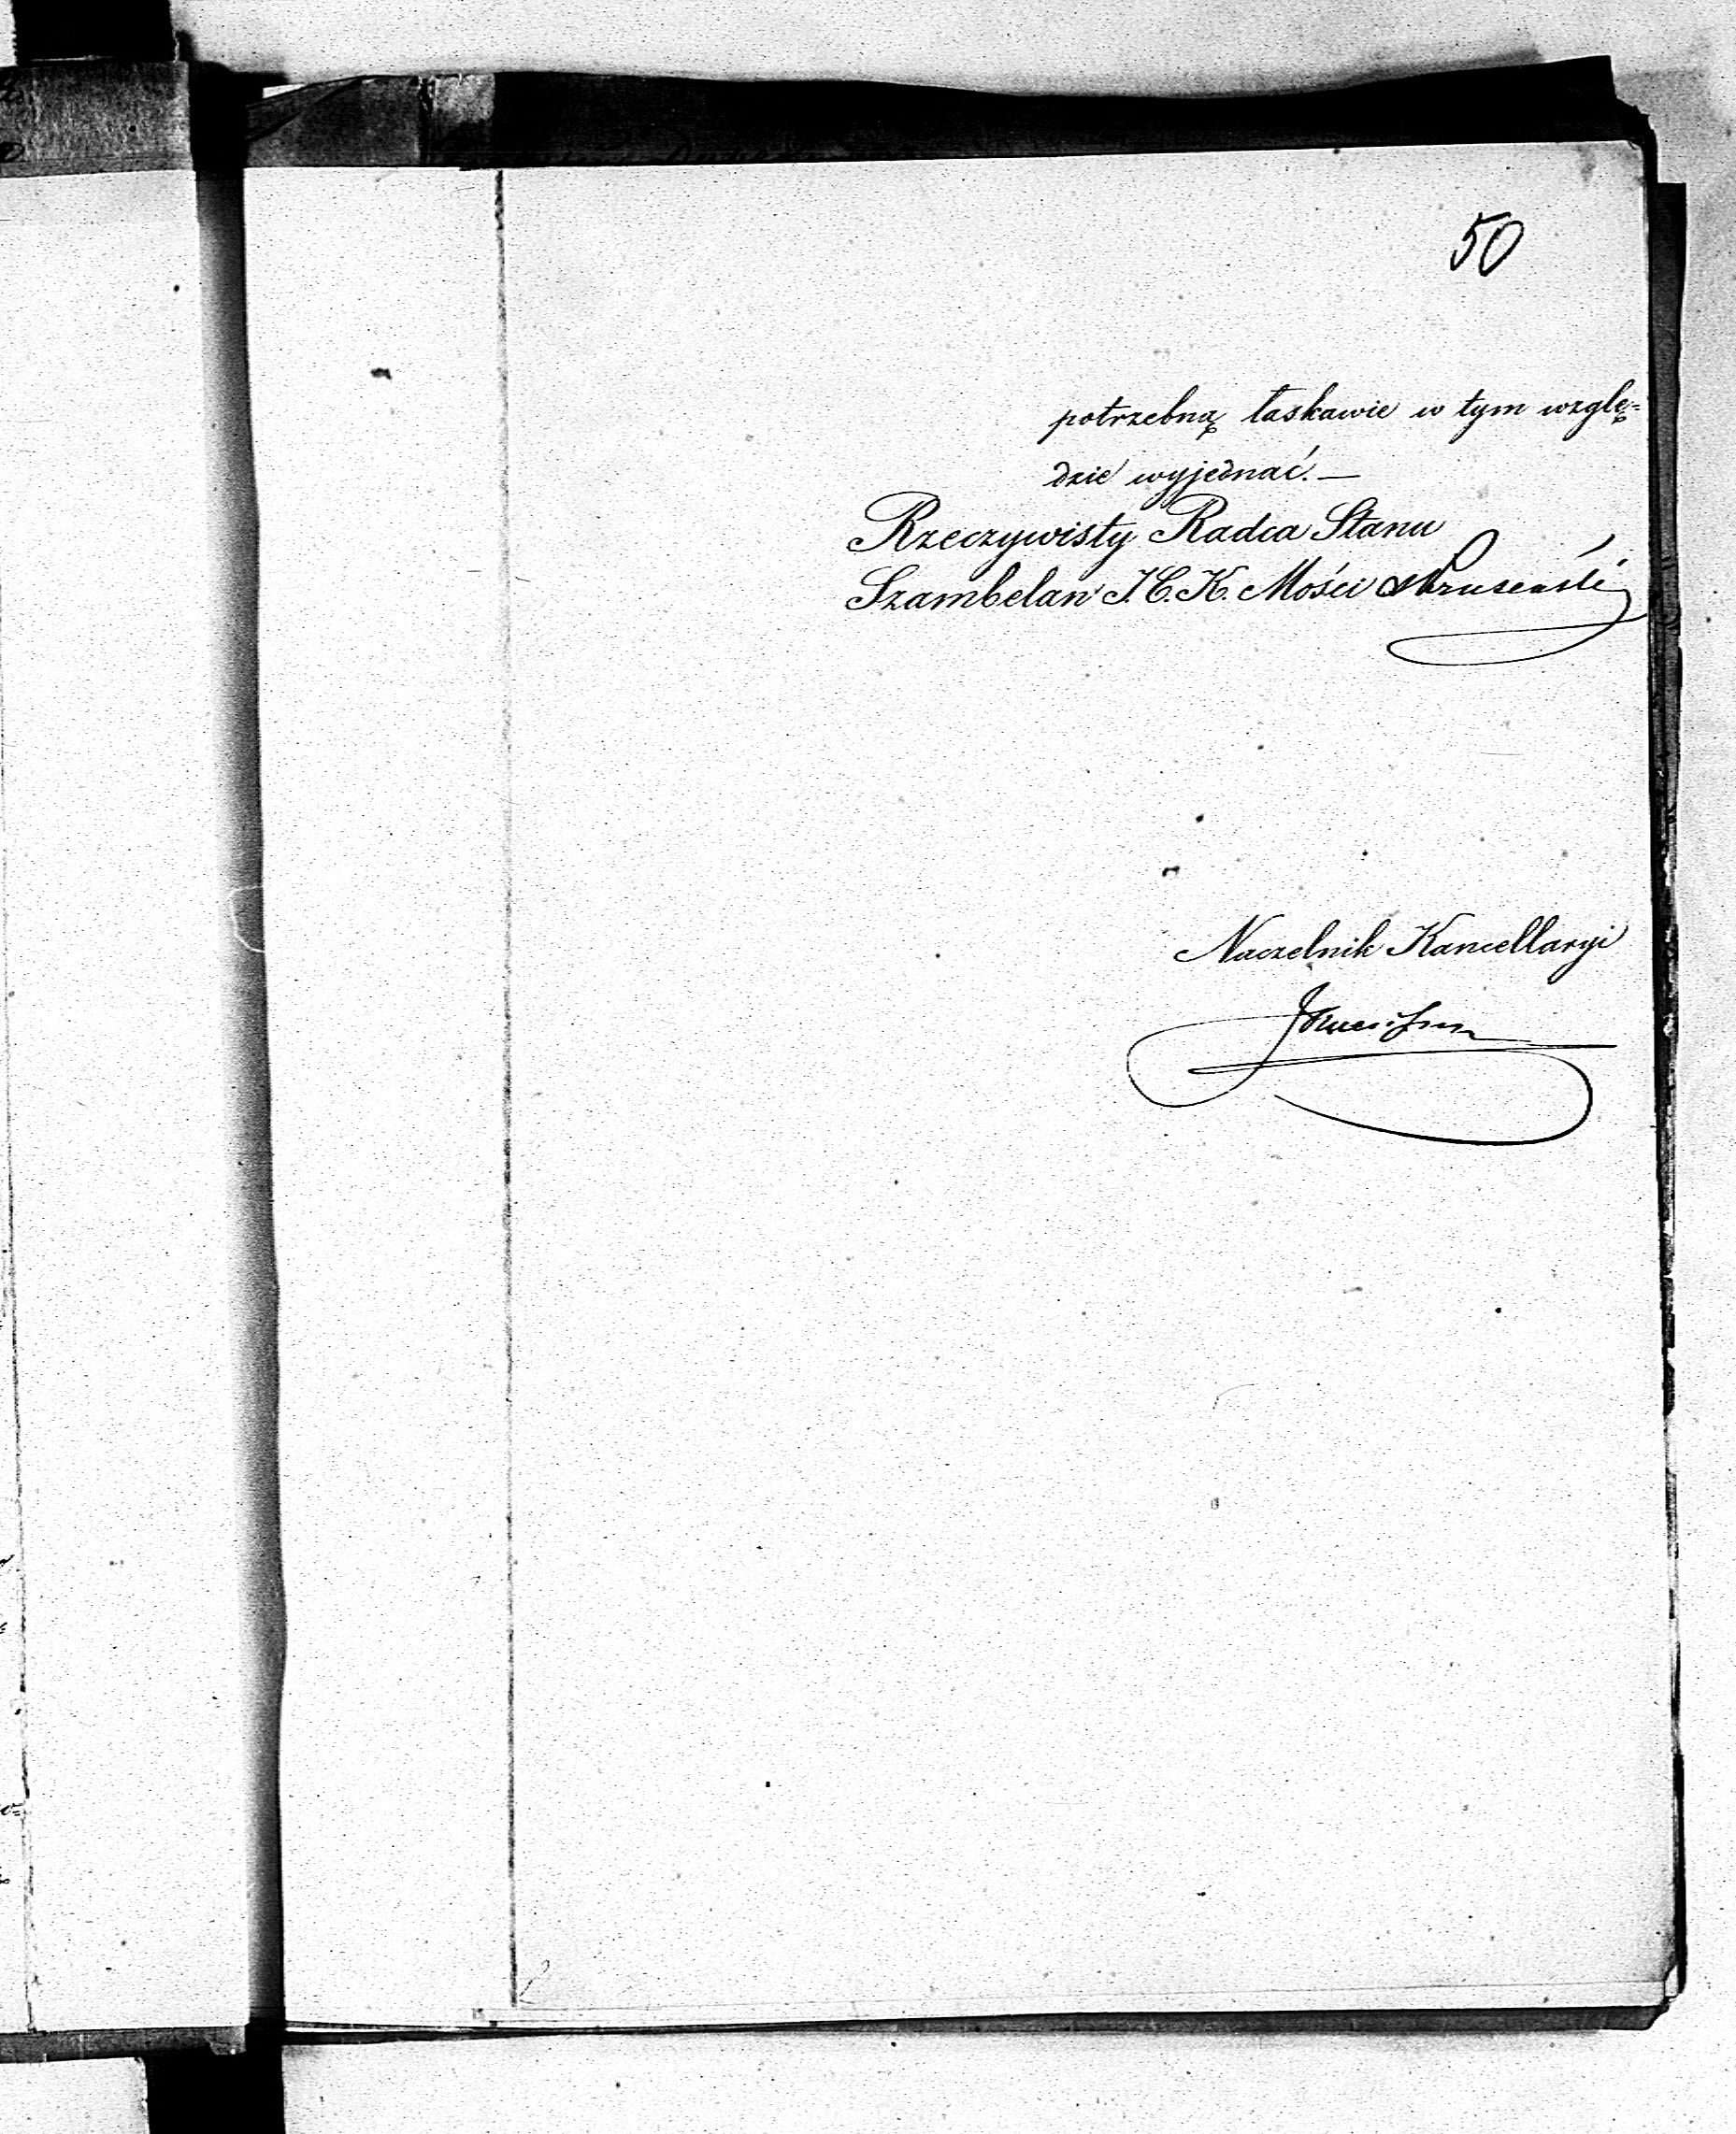 50
potrzebną łaskawie w tym wzglę=
dzie wyjednać. —
Rzeczywisty Radca Stanu
Szambelan J. C. K. Mości
Naczelnik Kancellaryi